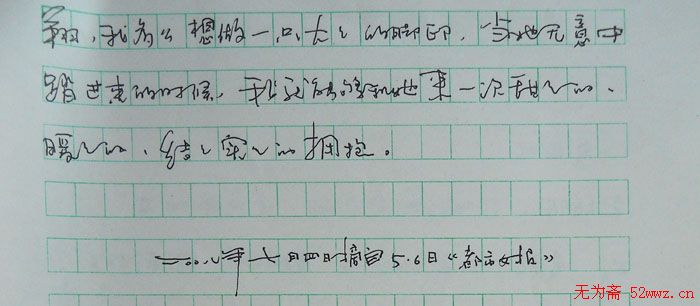 ,我多么想做一只大大的脚印,当她无意中
踏进来的时候,我就能够和她来一次甜甜的、
暖暖的、结结实实的拥抱。
年七月四日摘自5.6日“都市女报”
无为斋 52wwz.cn